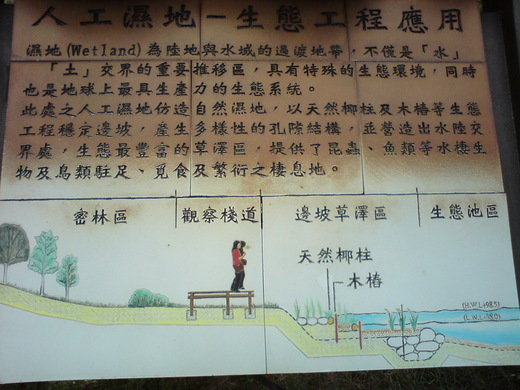 人工濕地－生態工程應用
濕地(Wetland)為陸地與水域的過渡地帶，不僅是「水」
「土」交界的重要推移區，具有特殊的生態環境，同時
也是地球上最具生產力的生態系統。
此處之人工濕地仿造自然濕地，以天然椰柱及木樁等生態
工程穩定邊坡，產生多樣性的孔隙結構，並營造出水陸交
界處，生態最豐富的草澤區，提供了昆蟲、魚類等水棲生
物及鳥類駐足、覓食及繁衍之棲息地。
密林區 觀察棧道 邊坡草澤區 生態池區
天然椰柱
木樁
(H.W.L+985)
(L.W.L+980)